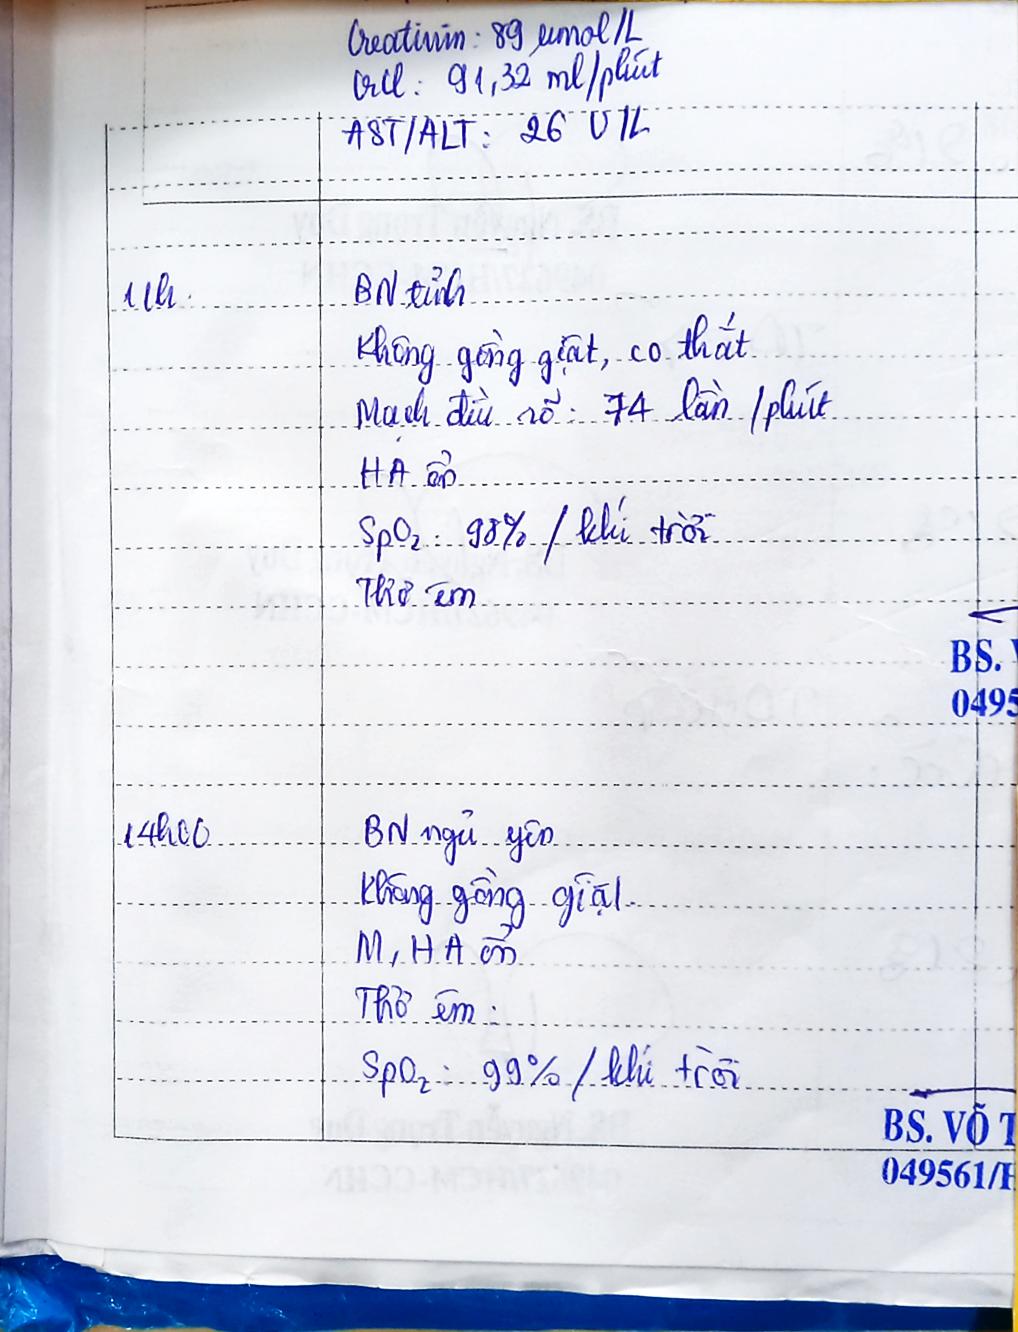 Creatinin: 89 µmol/L
CrCl: 91,32 ml/phút
AST/ALT: 26 U/L
11h
BN tỉnh
Không gồng giật, co thắt
Mạch đều rõ: 74 lần /phút
HA ổn
SpO₂: 98% / khí trời
Thở êm
BS.
0495
14h00
BN ngủ yên
Không gồng giật.
M, HA ổn
Thở êm.
SpO₂: 99% / khí trời
BS. VÕ T
049561/H